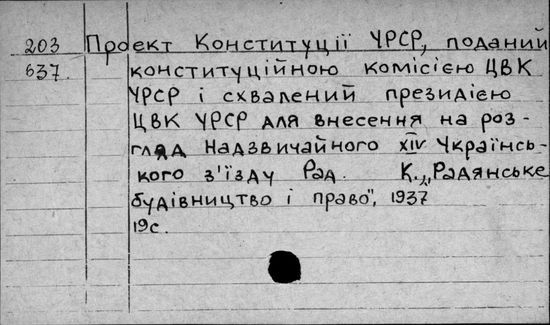 203 Проект Конституції УРСР, поданий
637. конституційною комісією ЦВК
УРСР і схвалений президією
ЦВК УРСР для внесення на роз-
гляд Надзвичайного XIV Українсь-
кого з'їзду Рад. К., „Радянське
будівництво і право", 1937
19с.